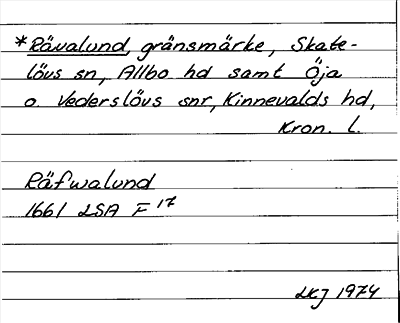 *Rävalund, gränsmärke, Skate-
lövs sn, Allbo hd samt Öja
o. Vederslövs snr, Kinnevalds hd,
Kron. l.
Räfwalund
1661 LSA F 17
LKJ 1974